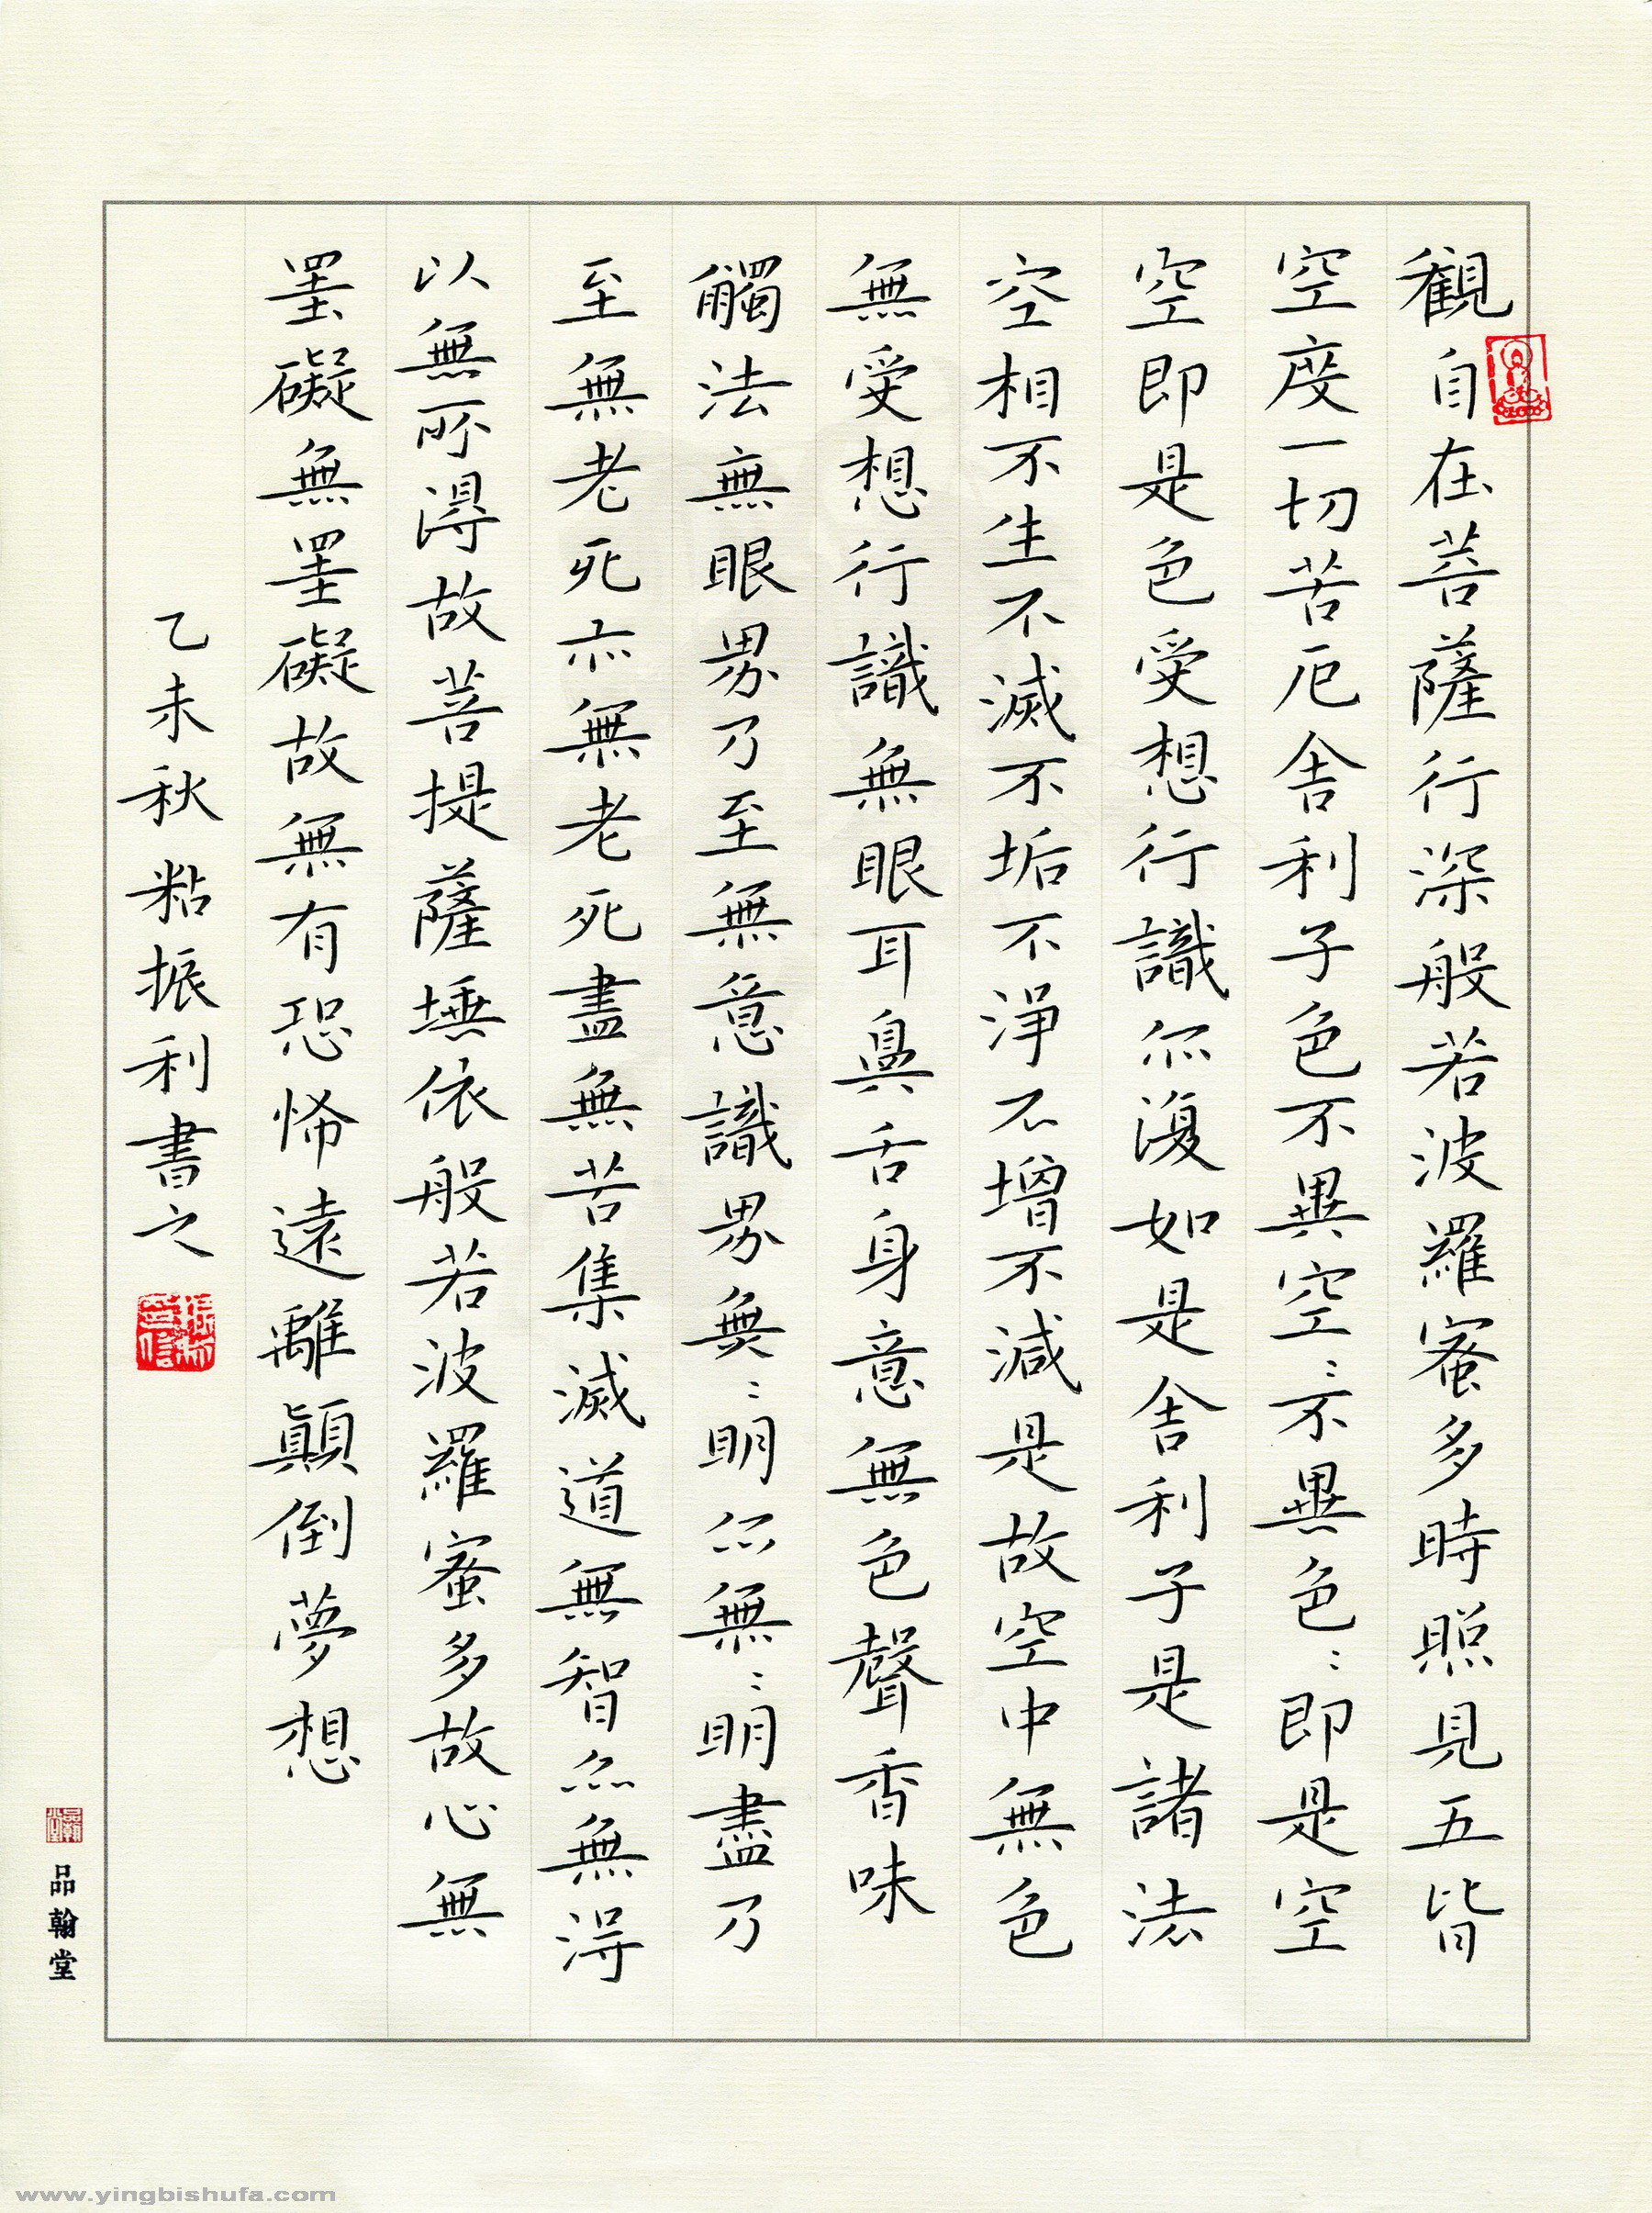 觀自在菩薩行深般若波羅蜜多時照見五皆
空度一切苦厄舍利子色不異空〻不異色〻即是空
空即是色受想行識亦復如是舍利子是諸法
空相不生不滅不垢不淨不增不減是故空中無色
無受想行識無眼耳鼻舌身意無色聲香味
觸法無眼界乃至無意識界無〻明亦無〻明盡乃
至無老死亦無老死盡無苦集滅道無智亦無得
以無所得故菩提薩埵依般若波羅蜜多故心無
罣礙無罣礙故無有恐怖遠離顛倒夢想
乙未秋粘振利書之
品翰堂
www.yingbishufa.com